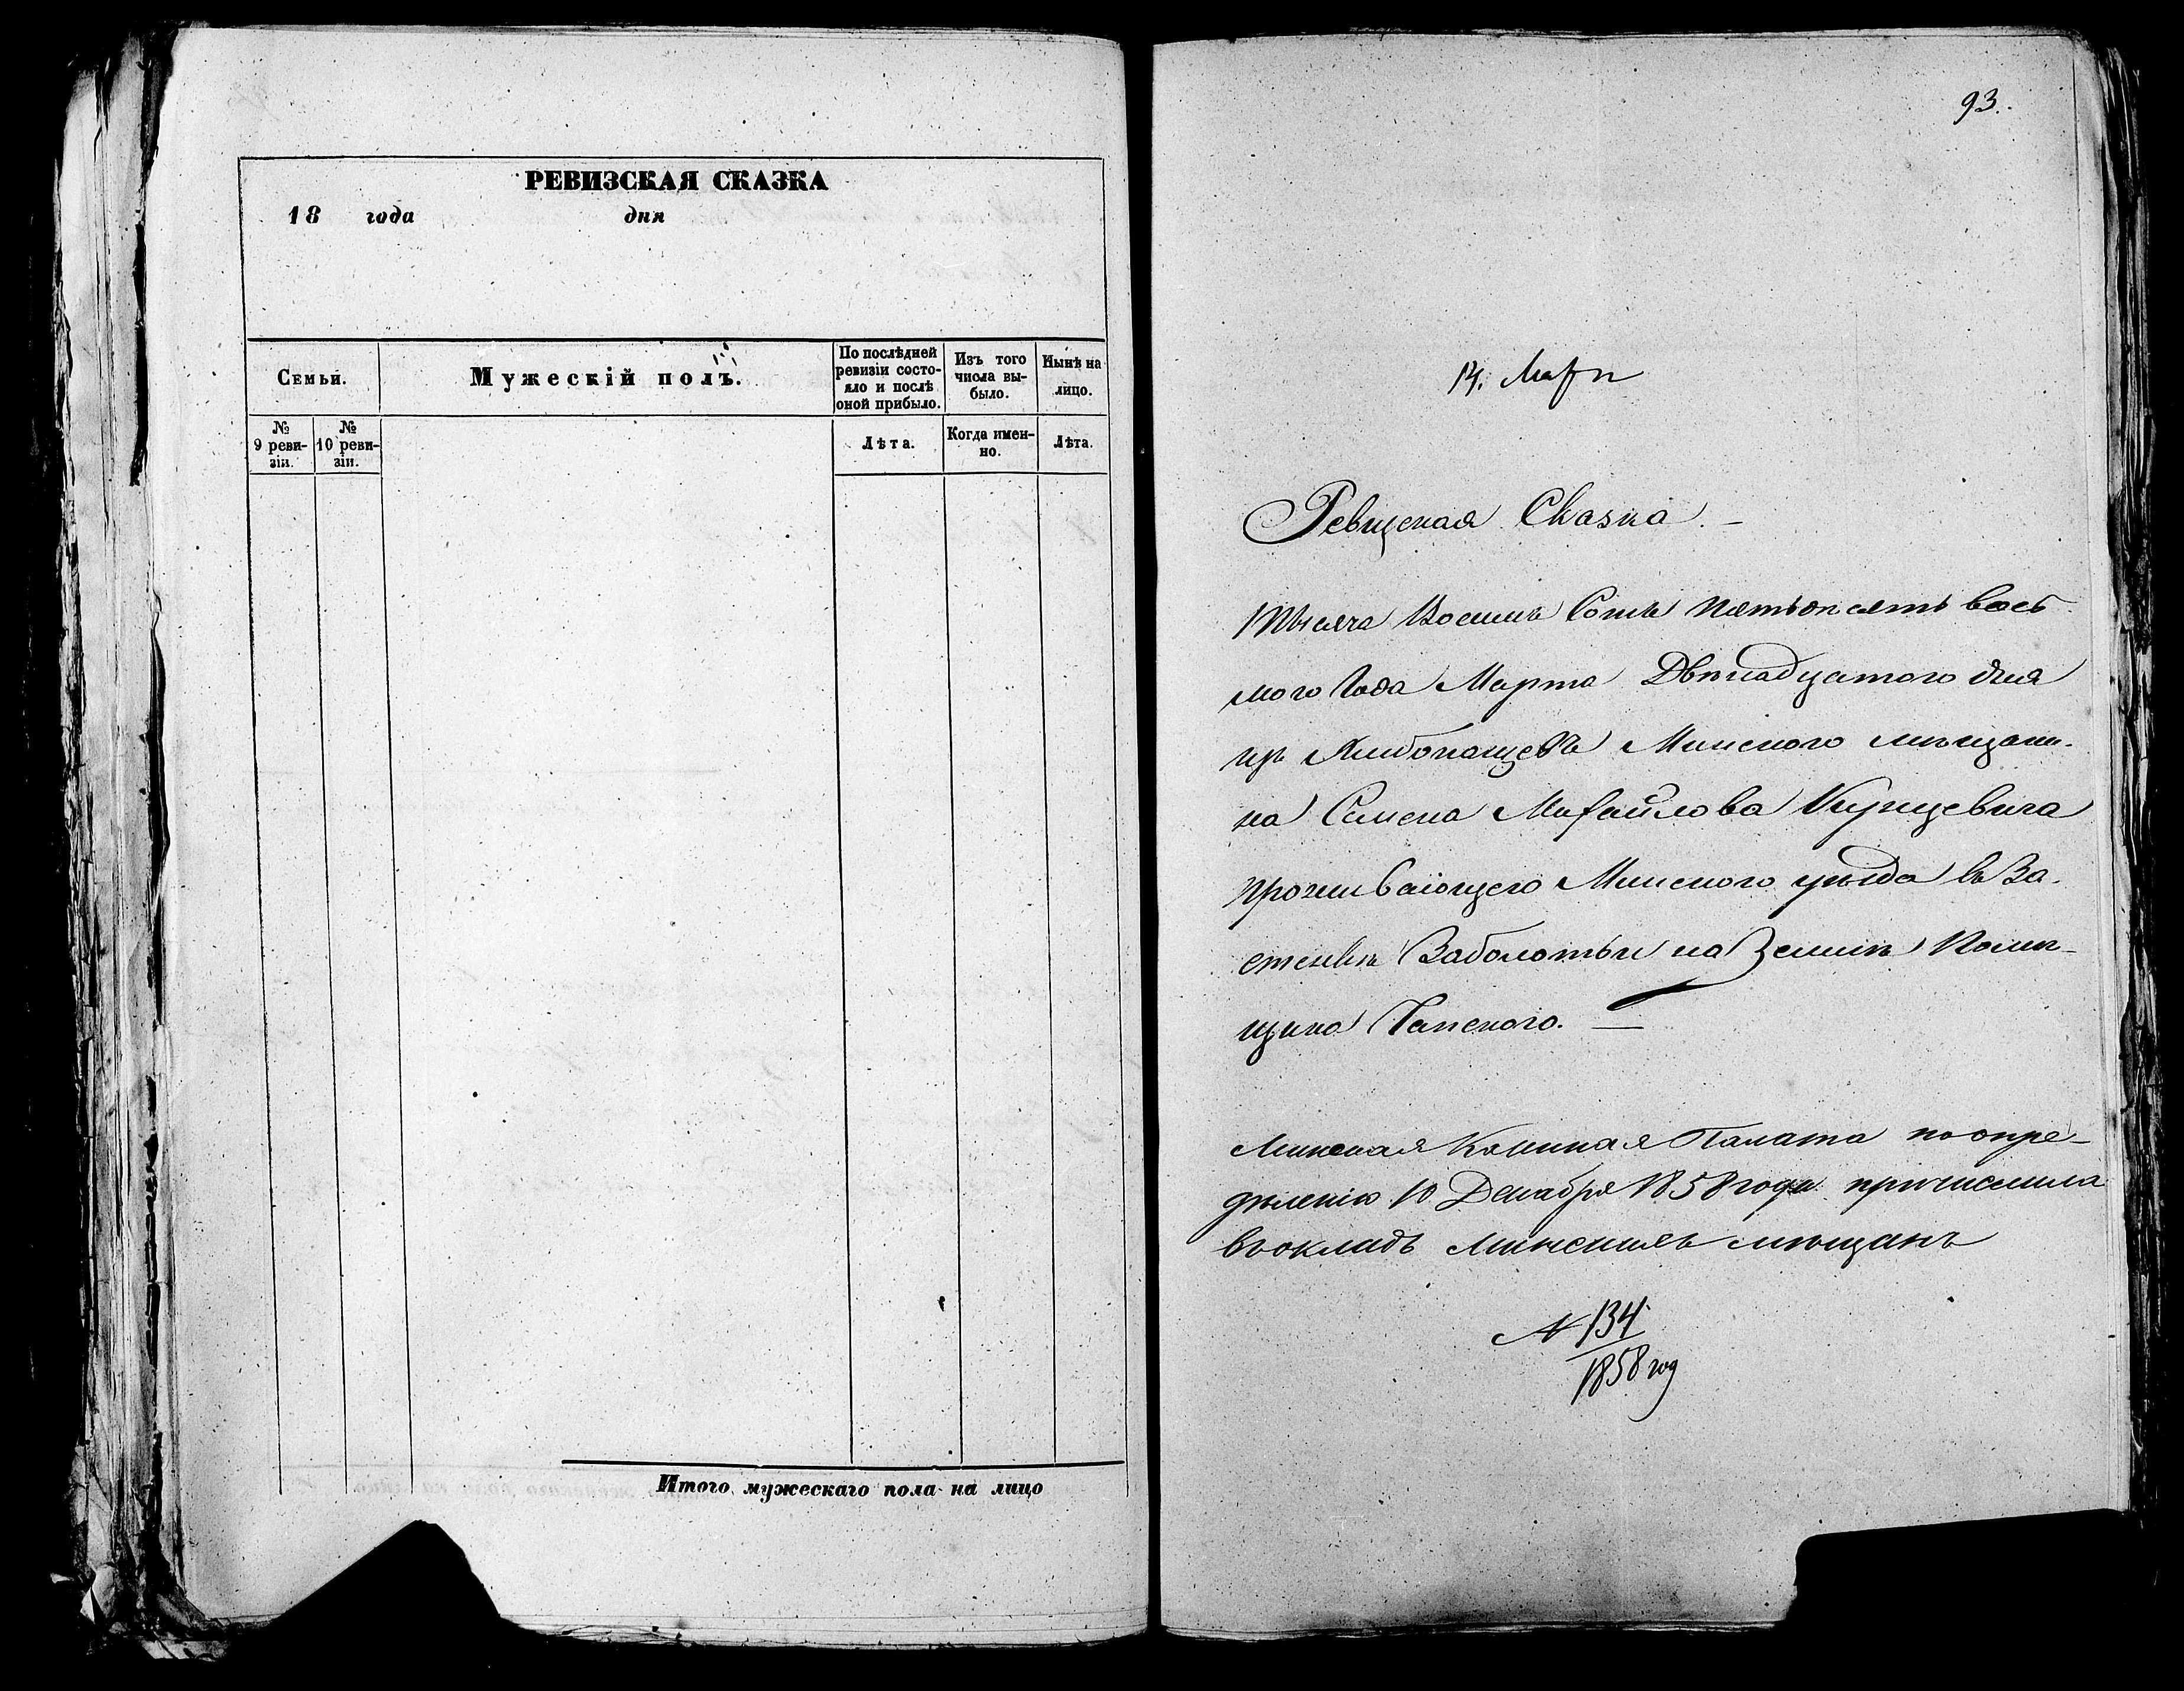 РЕВИЗСКАЯ СКАЗКА
18 года дня
Семьи.
Мужескій полъ.
По послѣдней
ревизіи состо-
яло и послѣ
оной прибыло.
Изъ того
числа вы-
было.
Нынѣ на
лицо.
№
9 реви-
зіи.
№
10 реви-
зіи.
Лѣта.
Когда имен-
но.
Лѣта.
Итого мужескаго пола на лицо
93.
14. Март
Ревизская Сказка. —
Тысяча Восемь Сотъ Пятьдесятъ вось
мого Года Марта Двѣнадцатого дня
изъ Минского мѣщани-
на Семена Михайлова
проживающего Минского уѣзда въ За-
стенкѣ Заболотьи на Землѣ Помѣ-
щика Гапского. —
Минская Казенная Палата по опре-
дѣленію 10 Декабря 1858 года причислила
въ окладъ Минскихъ мѣщанъ
№ 134
1858 год